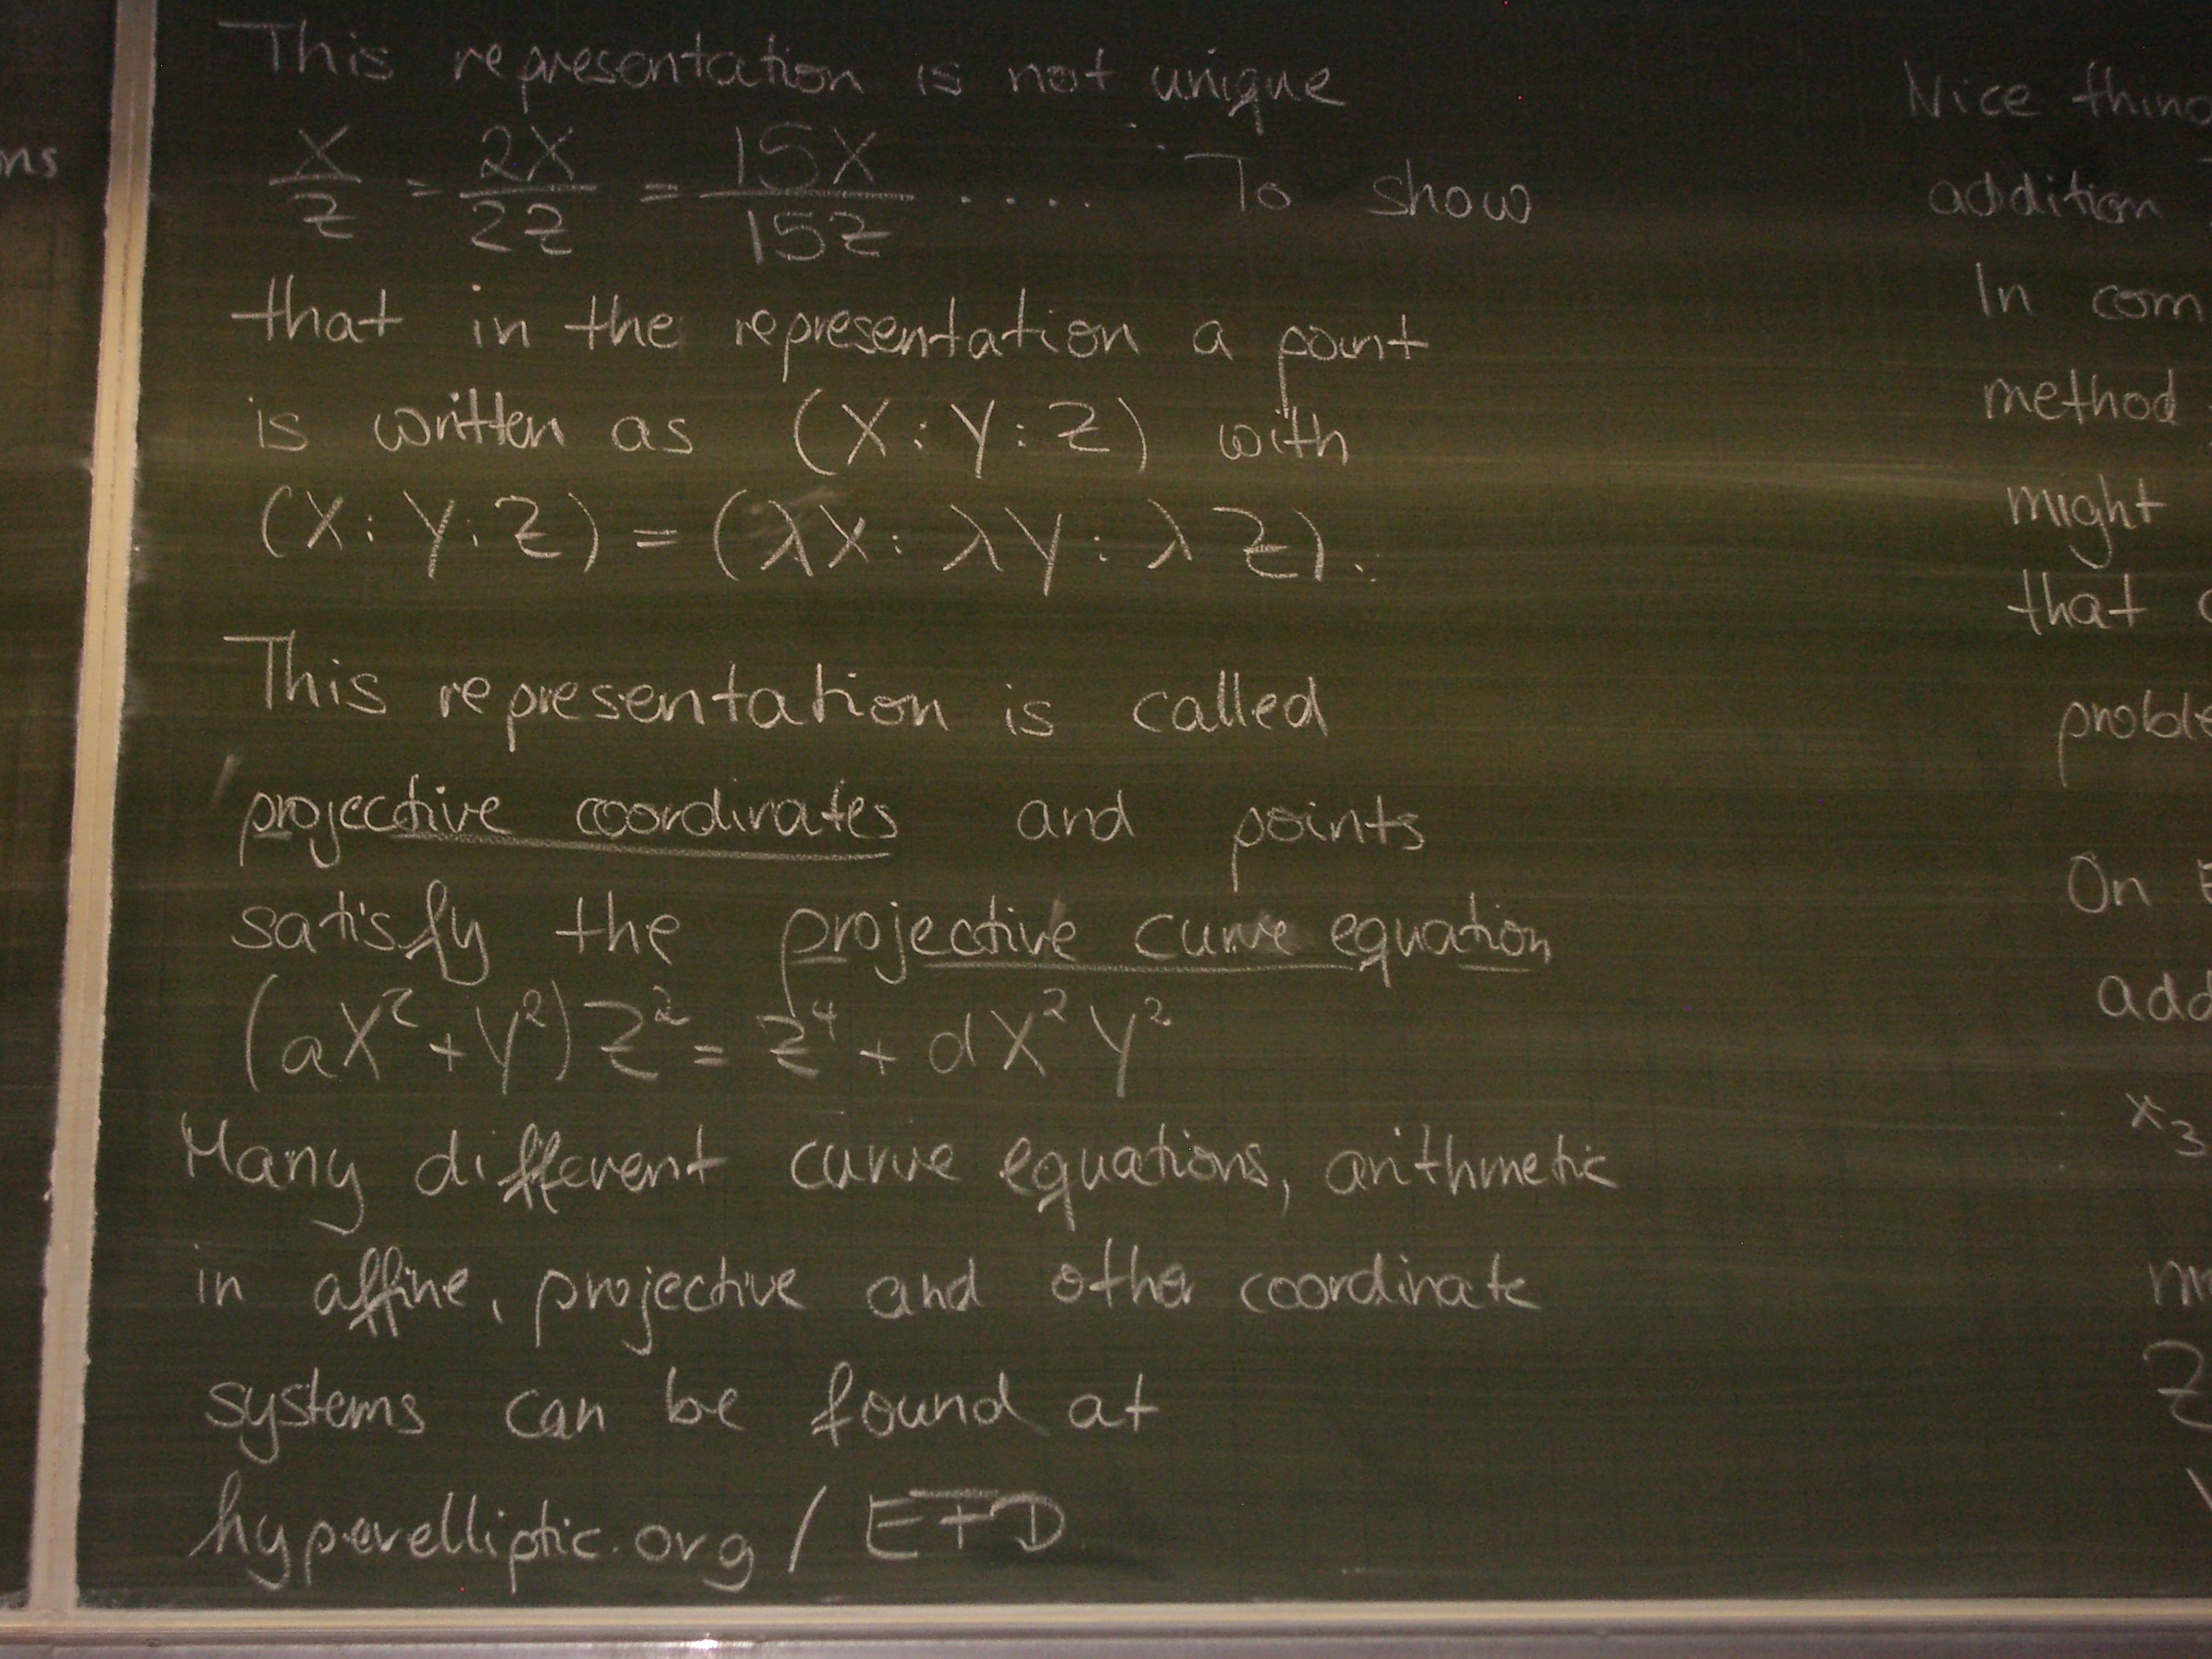 This representation is not unique
X/Z = 2X/2Z = 15X/15Z ..... To show
that in the representation a point
is written as (X:Y:Z) with
(X:Y:Z) = (λX:λY:λZ).
This representation is called
projective coordinates and points
satisfy the projective curve equation
(aX²+Y²)Z² = Z⁴ + dX²Y²
Many different curve equations, arithmetic
in affine, projective and other coordinate
systems can be found at
hyperelliptic.org/EFD
ns
Nice thing
addition
In com
method
might
that
proble
On E
add
x₃
Z